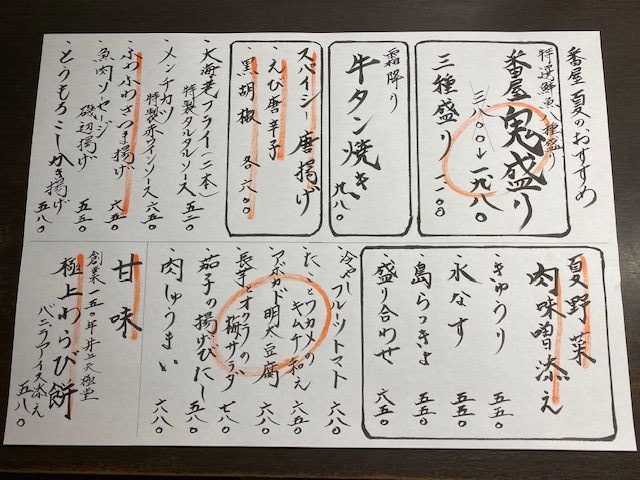 番屋 夏のおすすめ
特選鮮魚八種盛り
番屋 鬼盛り
三八〇〇→一九八〇
三種盛り 一一〇〇
霜降り
牛タン焼き 九八〇
スパイシー唐揚げ
・えび唐辛子
・黒胡椒 各六〇〇
・大海老フライ(二本)
特製タルタルソース 五二〇
・メンチカツ
特製赤ワインソース 六五〇
・ふわふわさつま揚げ 六五〇
・魚肉ソーセージ
磯辺揚げ 五五〇
・とうもろこしかき揚げ 五八〇
夏野菜
肉味噌添え
・きゅうり 五五〇
・水なす 五五〇
・島らっきょ 五五〇
・盛り合わせ 六五〇
・冷やしフルーツトマト 六八〇
・たことワカメの
キムチ和え 六五〇
・アボカド明太豆腐 六八〇
・長芋とオクラの
梅サラダ 七八〇
・茄子の揚げびたし 五八〇
・肉しゅうまい 六八〇
甘味
創業一五〇年井上天極堂
極上わらび餅
バニラアイス添え 五八〇